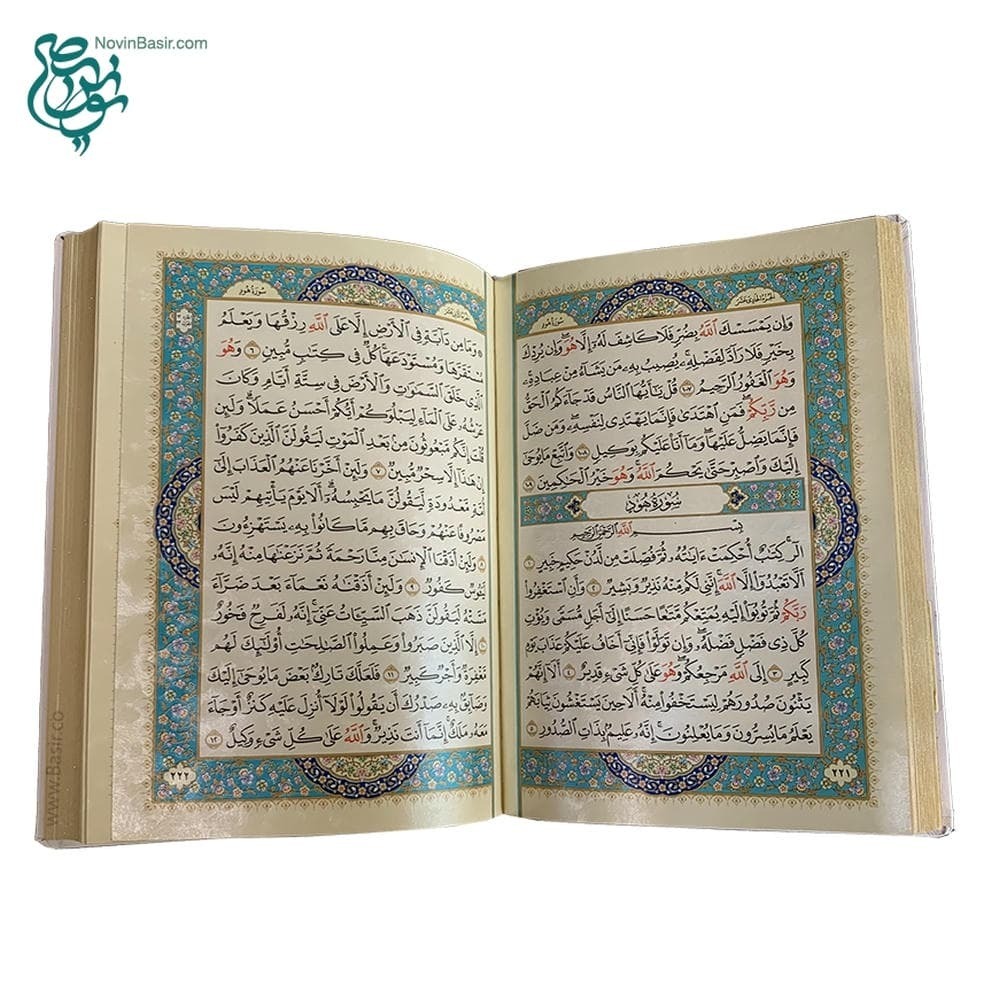 NovinBasir.com
الجزء الحادی عشر
سورة هود
وَإِن يَمْسَسْكَ ٱللَّهُ بِضُرٍّ فَلَا كَاشِفَ لَهُۥٓ إِلَّا هُوَ ۖ وَإِن يُرِدْكَ
بِخَيْرٍ فَلَا رَآدَّ لِفَضْلِهِۦ ۚ يُصِيبُ بِهِۦ مَن يَشَآءُ مِنْ عِبَادِهِۦ ۚ
وَهُوَ ٱلْغَفُورُ ٱلرَّحِيمُ ١٠٧ قُلْ يَٰٓأَيُّهَا ٱلنَّاسُ قَدْ جَآءَكُمُ ٱلْحَقُّ
مِن رَّبِّكُمْ ۖ فَمَنِ ٱهْتَدَىٰ فَإِنَّمَا يَهْتَدِى لِنَفْسِهِۦ ۖ وَمَن ضَلَّ
فَإِنَّمَا يَضِلُّ عَلَيْهَا ۖ وَمَآ أَنَا۠ عَلَيْكُم بِوَكِيلٍ ١٠٨ وَٱتَّبِعْ مَا يُوحَىٰٓ
إِلَيْكَ وَٱصْبِرْ حَتَّىٰ يَحْكُمَ ٱللَّهُ ۚ وَهُوَ خَيْرُ ٱلْحَٰكِمِينَ ١٠٩
سُورَةُ هُودٍ
بِسْمِ ٱللَّهِ ٱلرَّحْمَٰنِ ٱلرَّحِيمِ
الٓر ۚ كِتَٰبٌ أُحْكِمَتْ ءَايَٰتُهُۥ ثُمَّ فُصِّلَتْ مِن لَّدُنْ حَكِيمٍ خَبِيرٍ ١
أَلَّا تَعْبُدُوٓا۟ إِلَّا ٱللَّهَ ۚ إِنَّنِى لَكُم مِّنْهُ نَذِيرٌ وَبَشِيرٌ ٢ وَأَنِ ٱسْتَغْفِرُوا۟
رَبَّكُمْ ثُمَّ تُوبُوٓا۟ إِلَيْهِ يُمَتِّعْكُم مَّتَٰعًا حَسَنًا إِلَىٰٓ أَجَلٍ مُّسَمًّى وَيُؤْتِ
كُلَّ ذِى فَضْلٍ فَضْلَهُۥ ۖ وَإِن تَوَلَّوْا۟ فَإِنِّىٓ أَخَافُ عَلَيْكُمْ عَذَابَ يَوْمٍ
كَبِيرٍ ٣ إِلَى ٱللَّهِ مَرْجِعُكُمْ ۖ وَهُوَ عَلَىٰ كُلِّ شَىْءٍ قَدِيرٌ ٤ أَلَآ إِنَّهُمْ
يَثْنُونَ صُدُورَهُمْ لِيَسْتَخْفُوا۟ مِنْهُ ۚ أَلَا حِينَ يَسْتَغْشُونَ ثِيَابَهُمْ
يَعْلَمُ مَا يُسِرُّونَ وَمَا يُعْلِنُونَ ۚ إِنَّهُۥ عَلِيمٌۢ بِذَاتِ ٱلصُّدُورِ ٥
٢٢١
سورة هود
وَمَا مِن دَآبَّةٍ فِى ٱلْأَرْضِ إِلَّا عَلَى ٱللَّهِ رِزْقُهَا وَيَعْلَمُ
مُسْتَقَرَّهَا وَمُسْتَوْدَعَهَا ۚ كُلٌّ فِى كِتَٰبٍ مُّبِينٍ ٦ وَهُوَ
ٱلَّذِى خَلَقَ ٱلسَّمَٰوَٰتِ وَٱلْأَرْضَ فِى سِتَّةِ أَيَّامٍ وَكَانَ
عَرْشُهُۥ عَلَى ٱلْمَآءِ لِيَبْلُوَكُمْ أَيُّكُمْ أَحْسَنُ عَمَلًا ۗ وَلَئِن
قُلْتَ إِنَّكُم مَّبْعُوثُونَ مِنۢ بَعْدِ ٱلْمَوْتِ لَيَقُولَنَّ ٱلَّذِينَ كَفَرُوٓا۟
إِنْ هَٰذَآ إِلَّا سِحْرٌ مُّبِينٌ ٧ وَلَئِنْ أَخَّرْنَا عَنْهُمُ ٱلْعَذَابَ إِلَىٰٓ
أُمَّةٍ مَّعْدُودَةٍ لَّيَقُولُنَّ مَا يَحْبِسُهُۥٓ ۗ أَلَا يَوْمَ يَأْتِيهِمْ لَيْسَ
مَصْرُوفًا عَنْهُمْ وَحَاقَ بِهِم مَّا كَانُوا۟ بِهِۦ يَسْتَهْزِءُونَ
٨ وَلَئِنْ أَذَقْنَا ٱلْإِنسَٰنَ مِنَّا رَحْمَةً ثُمَّ نَزَعْنَٰهَا مِنْهُ إِنَّهُۥ
لَيَـُٔوسٌ كَفُورٌ ٩ وَلَئِنْ أَذَقْنَٰهُ نَعْمَآءَ بَعْدَ ضَرَّآءَ
مَسَّتْهُ لَيَقُولَنَّ ذَهَبَ ٱلسَّيِّـَٔاتُ عَنِّىٓ ۚ إِنَّهُۥ لَفَرِحٌ فَخُورٌ
١٠ إِلَّا ٱلَّذِينَ صَبَرُوا۟ وَعَمِلُوا۟ ٱلصَّٰلِحَٰتِ أُو۟لَٰٓئِكَ لَهُم
مَّغْفِرَةٌ وَأَجْرٌ كَبِيرٌ ١١ فَلَعَلَّكَ تَارِكٌۢ بَعْضَ مَا يُوحَىٰٓ إِلَيْكَ
وَضَآئِقٌۢ بِهِۦ صَدْرُكَ أَن يَقُولُوا۟ لَوْلَآ أُنزِلَ عَلَيْهِ كَنزٌ أَوْ جَآءَ
مَعَهُۥ مَلَكٌ ۚ إِنَّمَآ أَنتَ نَذِيرٌ ۚ وَٱللَّهُ عَلَىٰ كُلِّ شَىْءٍ وَكِيلٌ ١٢
٢٢٢
www.Basir.co